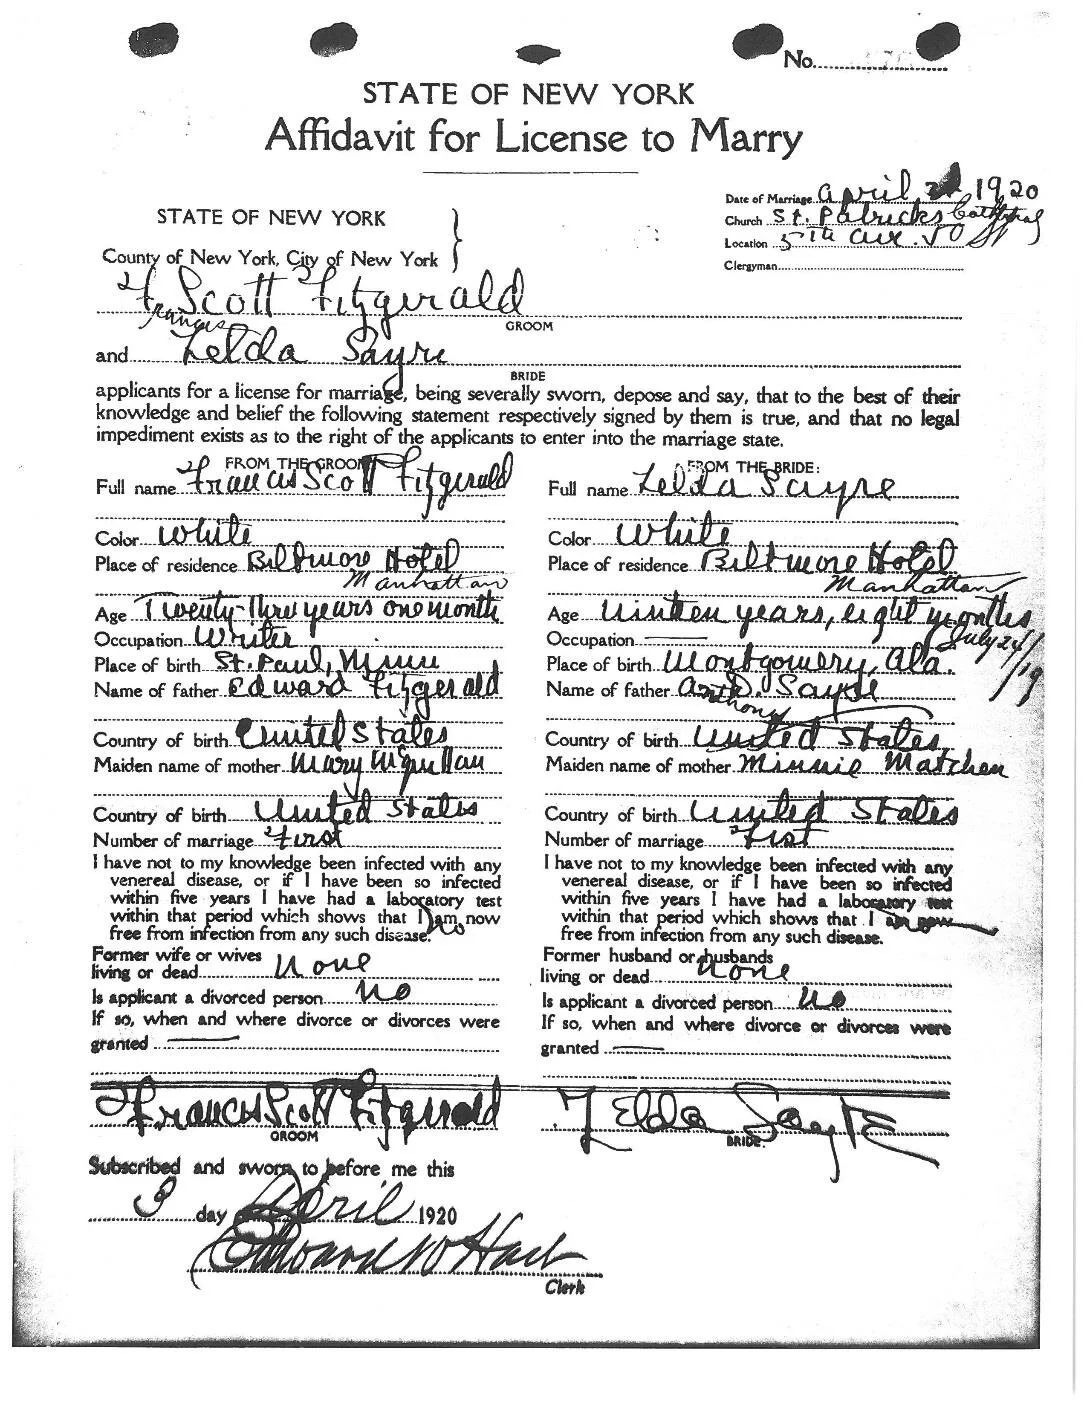 No.
STATE OF NEW YORK
Affidavit for License to Marry
Date of Marriage April 1920
Church St. Patricks Cathedral
Location 5th Ave. 50 St
Clergyman
STATE OF NEW YORK
County of New York, City of New York
Fr. Scott Fitzgerald
Francis
GROOM
and Zelda Sayre
BRIDE
applicants for a license for marriage, being severally sworn, depose and say, that to the best of their
knowledge and belief the following statement respectively signed by them is true, and that no legal
impediment exists as to the right of the applicants to enter into the marriage state.
FROM THE GROOM
Full name Francis Scott Fitzgerald
Color White
Place of residence Biltmore Hotel
Manhattan
Age Twenty-thre years one month
Occupation Writer
Place of birth St. Paul, Minn
Name of father Edward Fitzgerald
Country of birth United States
Maiden name of mother Mary McQuillan
Country of birth United States
Number of marriage First
I have not to my knowledge been infected with any
venereal disease, or if I have been so infected
within five years I have had a laboratory test
within that period which shows that I am now
free from infection from any such disease. No
Former wife or wives
living or dead None
Is applicant a divorced person No
If so, when and where divorce or divorces were
granted
FROM THE BRIDE:
Full name Zelda Sayre
Color White
Place of residence Biltmore Hotel
Manhattan
Age Ninteen years, eight months
July 24/19
Occupation
Place of birth Montgomery, Ala.
Name of father Anth D. Sayre
Anthony
Country of birth United States
Maiden name of mother Minnie Matchen
Country of birth United States
Number of marriage First
I have not to my knowledge been infected with any
venereal disease, or if I have been so infected
within five years I have had a laboratory test
within that period which shows that I am now
free from infection from any such disease.
Former husband or husbands
living or dead None
Is applicant a divorced person No
If so, when and where divorce or divorces were
granted
Francis Scott Fitzgerald
GROOM
Zelda Sayre
BRIDE.
Subscribed and sworn to before me this
3 day April 1920
Edward W Hart
Clerk